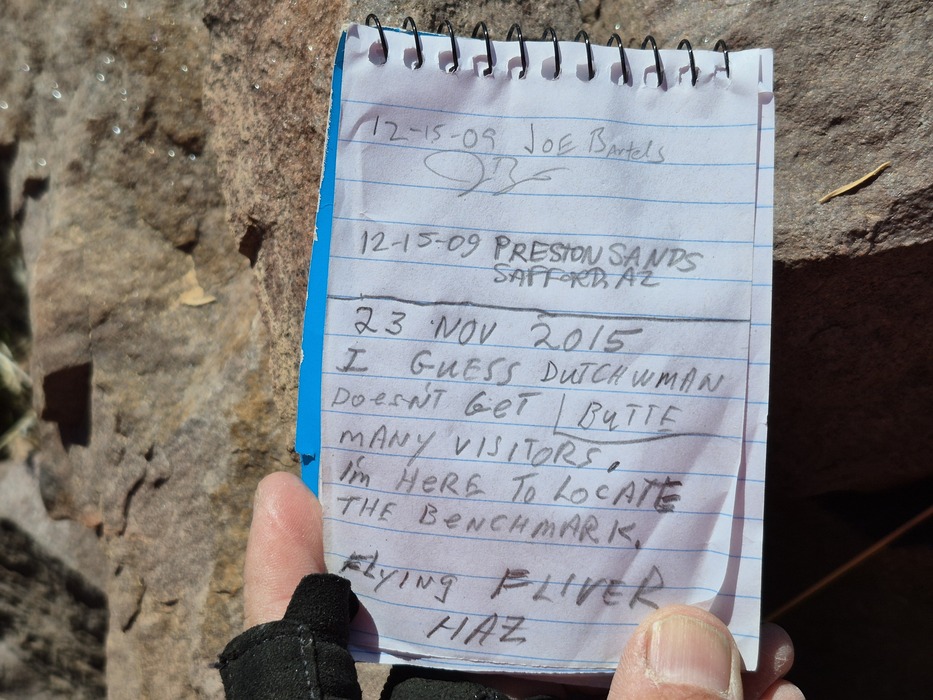 12-15-09 JOE Bartels
JB
12-15-09 PRESTON SANDS
SAFFORD, AZ
23 NOV 2015
I GUESS DUTCHWMAN
DOESN'T GET BUTTE
MANY VISITORS.
I'm HERE TO LOCATE
THE BENCHMARK.
FLYING FLIVER
HAZ